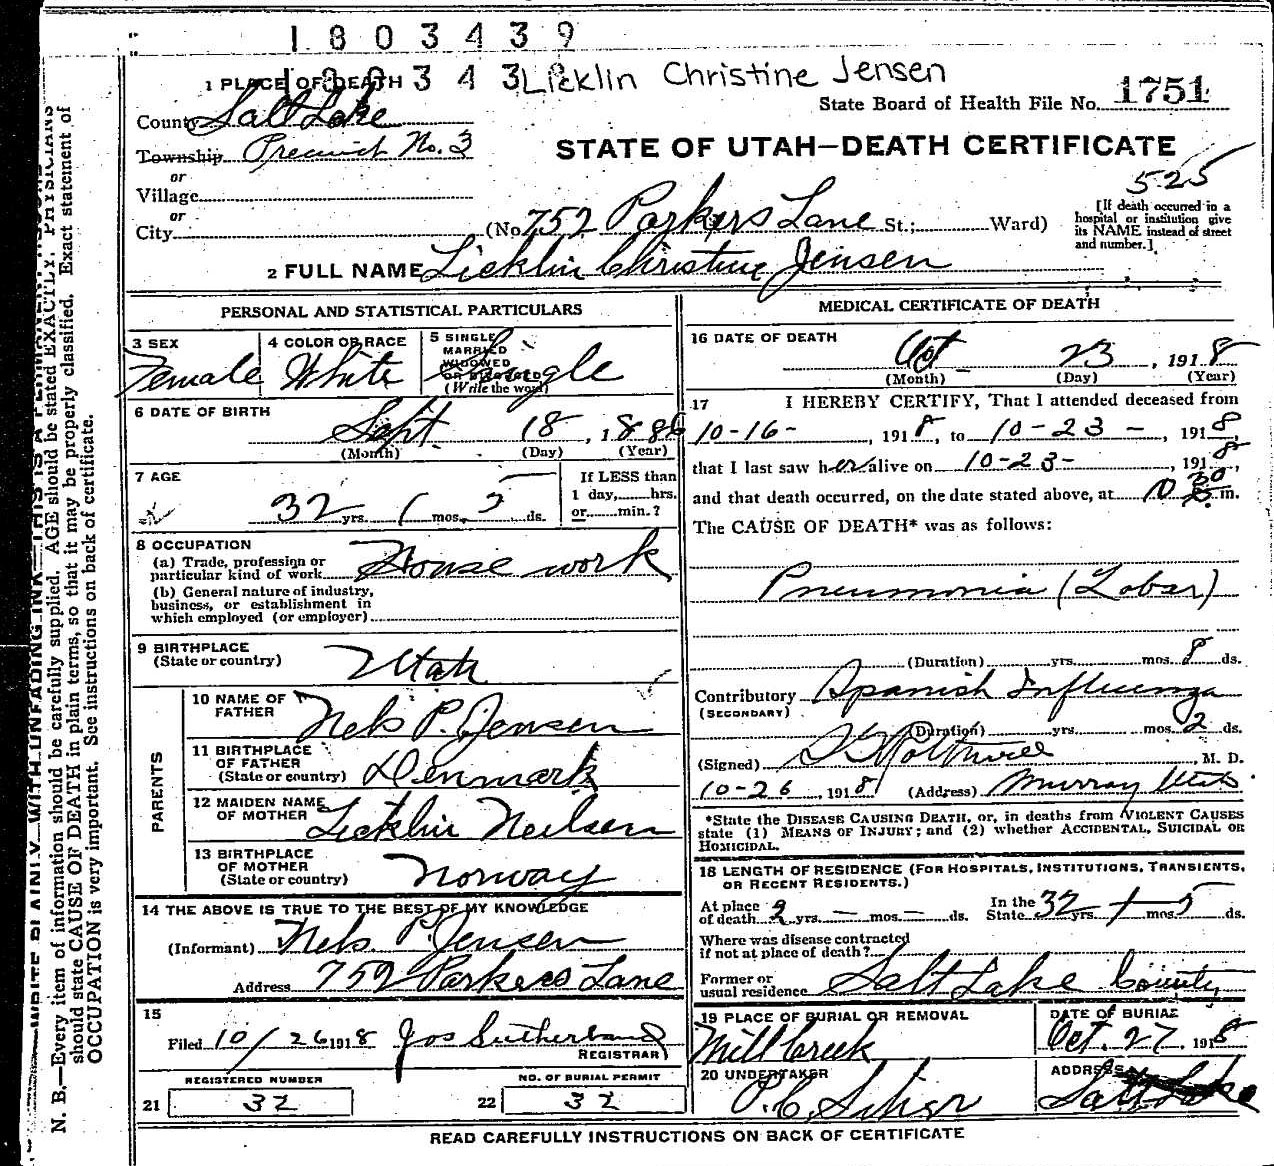 1803439
180343
Licklin Christine Jensen
1 PLACE OF DEATH
State Board of Health File No. 1751
County Salt Lake
Township Precinct No. 3
STATE OF UTAH—DEATH CERTIFICATE
or
525
Village
or
City (No. 752 Parkers Lane St.; Ward)
[If death occurred in a
hospital or institution give
its NAME instead of street
and number.]
2 FULL NAME Licklin Christine Jensen
PERSONAL AND STATISTICAL PARTICULARS
3 SEX
Female
4 COLOR OR RACE
White
5 SINGLE
MARRIED
WIDOWED
OR DIVORCED
(Write the word)
Single
6 DATE OF BIRTH
Sept. 18, 1886
(Month) (Day) (Year)
7 AGE
32 yrs. 1 mos. 5 ds.
If LESS than
1 day, hrs.
or min.?
8 OCCUPATION
(a) Trade, profession or
particular kind of work House work
(b) General nature of industry,
business, or establishment in
which employed (or employer)
9 BIRTHPLACE
(State or country) Utah
PARENTS
10 NAME OF
FATHER Nels P. Jensen
11 BIRTHPLACE
OF FATHER
(State or country) Denmark
12 MAIDEN NAME
OF MOTHER Licklin Neilsen
13 BIRTHPLACE
OF MOTHER
(State or country) Norway
14 THE ABOVE IS TRUE TO THE BEST OF MY KNOWLEDGE
(Informant) Nels. P. Jensen
Address 752 Parkers Lane
15
Filed 10/26 1918 Jos Sutherland
REGISTRAR
REGISTERED NUMBER
21 32
NO. OF BURIAL PERMIT
22 32
MEDICAL CERTIFICATE OF DEATH
16 DATE OF DEATH
Oct 23, 1918
(Month) (Day) (Year)
17 I HEREBY CERTIFY, That I attended deceased from
10-16-, 1918, to 10-23-, 1918,
that I last saw her alive on 10-23-, 1918,
and that death occurred, on the date stated above, at 10 30 m.
The CAUSE OF DEATH* was as follows:
Pneumonia (Lobar)
(Duration) yrs. mos. 8 ds.
Contributory Spanish Influenza
(SECONDARY)
(Duration) yrs. mos. 2 ds.
(Signed) M. D.
10-26, 1918 (Address) Murray Utah
*State the DISEASE CAUSING DEATH, or, in deaths from VIOLENT CAUSES
state (1) MEANS OF INJURY; and (2) whether ACCIDENTAL, SUICIDAL OR
HOMICIDAL.
18 LENGTH OF RESIDENCE (FOR HOSPITALS, INSTITUTIONS, TRANSIENTS,
OR RECENT RESIDENTS.)
At place
of death 2 yrs. — mos. — ds.
In the
State 32 yrs. 1 mos. 5 ds.
Where was disease contracted
if not at place of death?
Former or
usual residence Salt Lake County
19 PLACE OF BURIAL OR REMOVAL
Mill Creek
DATE OF BURIAL
Oct. 27, 1918
20 UNDERTAKER
ADDRESS
Salt Lake
READ CAREFULLY INSTRUCTIONS ON BACK OF CERTIFICATE
WRITE PLAINLY, WITH UNFADING INK—THIS IS A PERMANENT
N. B.—Every item of information should be carefully supplied. AGE should be stated EXACTLY. PHYSICIANS
should state CAUSE OF DEATH in plain terms, so that it may be properly classified. Exact statement of
OCCUPATION is very important. See instructions on back of certificate.